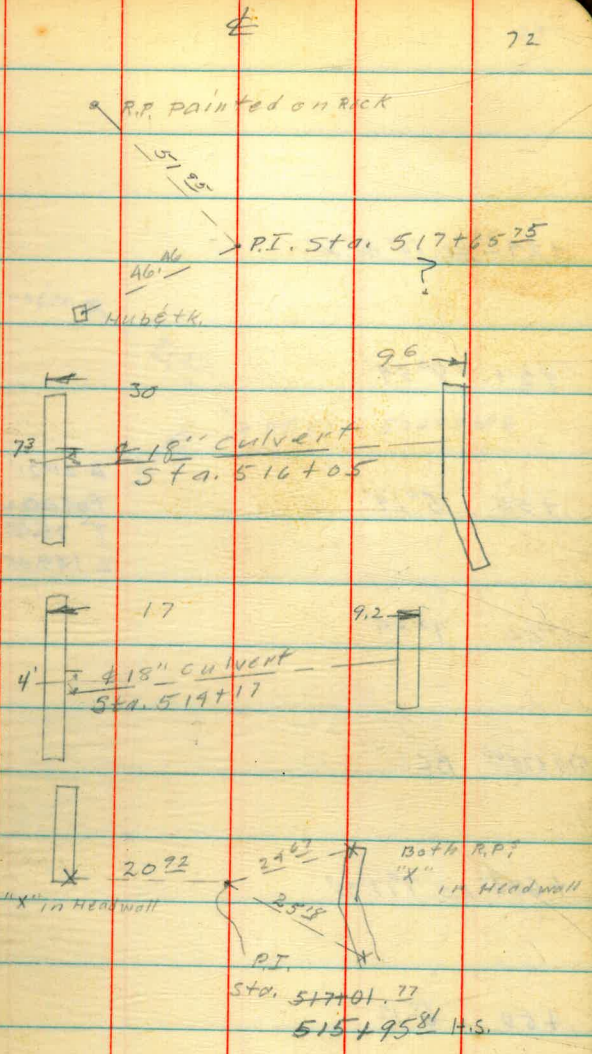 ℄ 72
R.P. painted on Rock
51 95
P.I. Sta. 517+65 75
?
46.46
Hub & tk.
9 6
30
7 3 ℄ 18" culvert
Sta. 516+05
17 9.2
4' ℄ 18" culvert
Sta. 514+17
20 92 24 67 Both R.P.s
"X" in Headwall "X"
in Headwall
25 18
P.I.
Sta. 517+01.77
515+95 81 H.S.